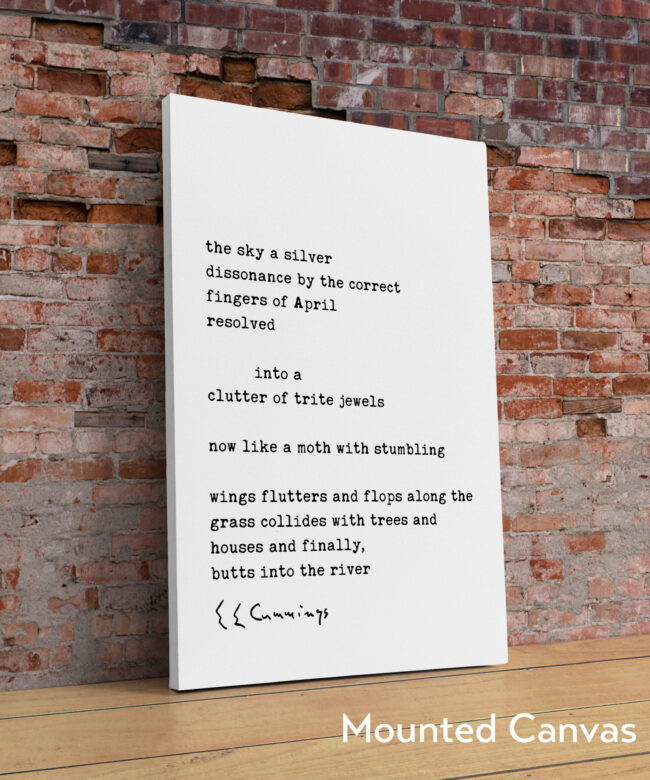 the sky a silver
dissonance by the correct
fingers of April
resolved
into a
clutter of trite jewels
now like a moth with stumbling
wings flutters and flops along the
grass collides with trees and
houses and finally,
butts into the river
EE Cummings
Mounted Canvas